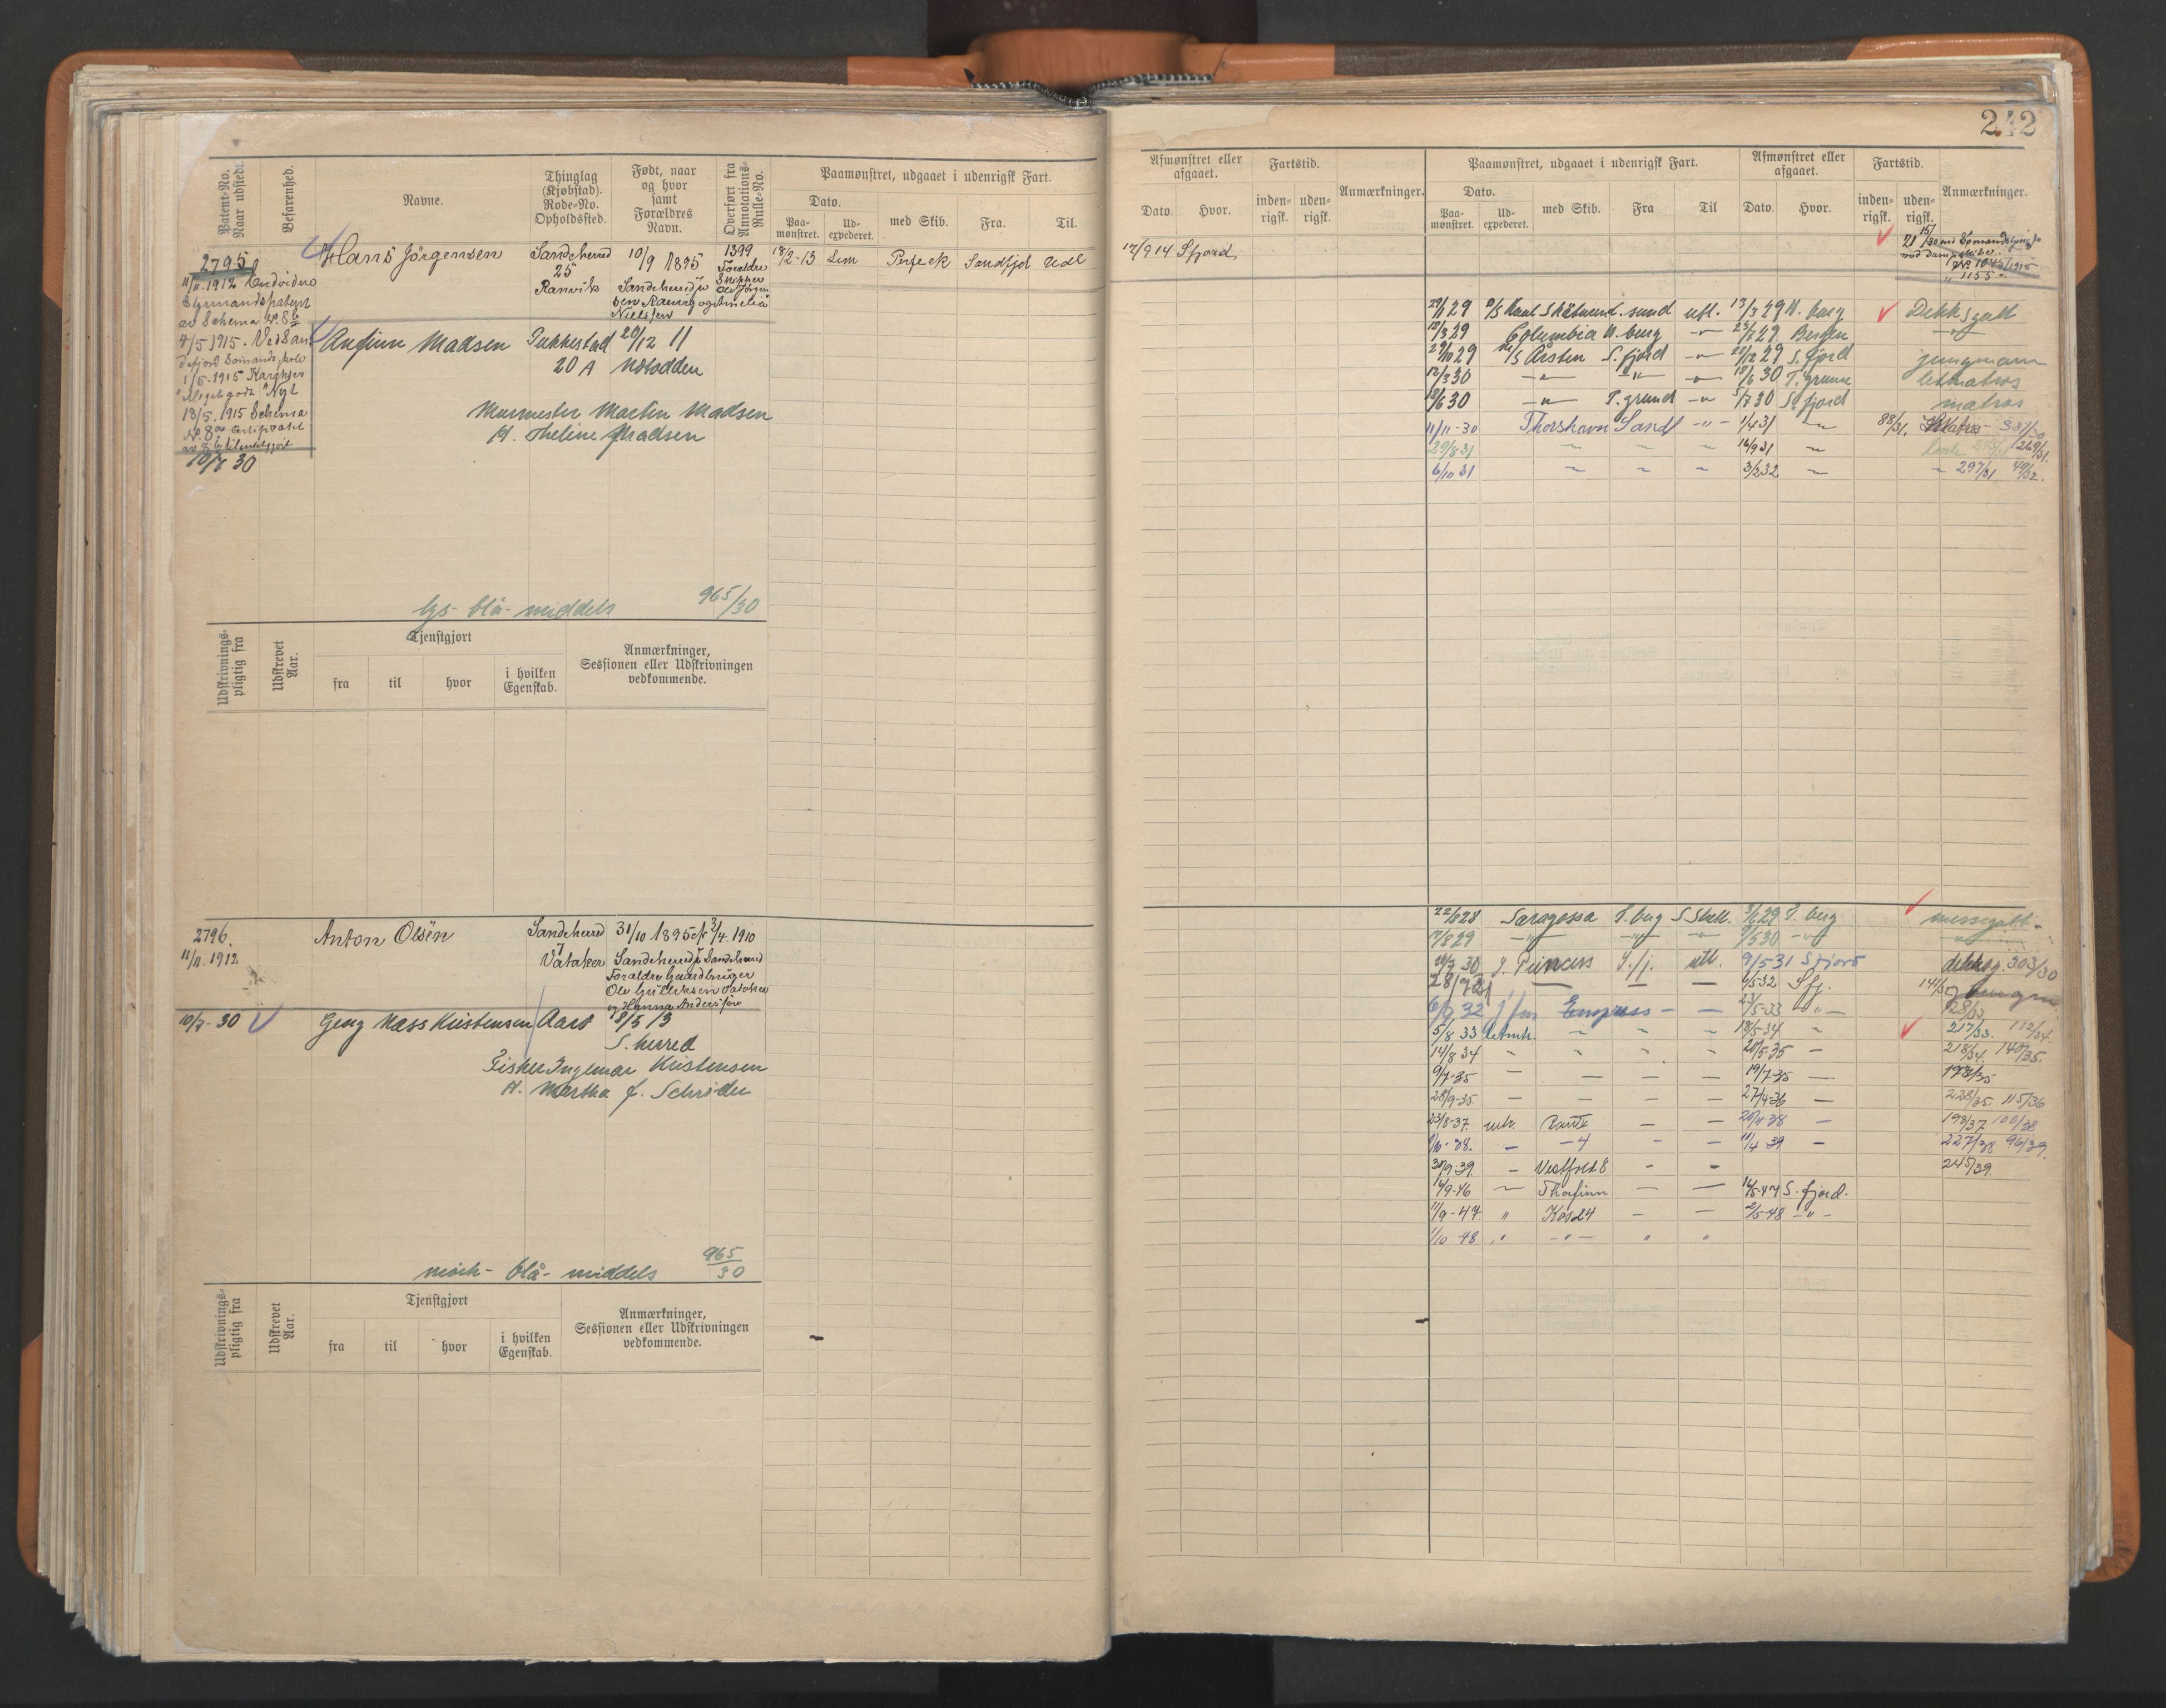 242
Patent-No. Naar udstedt.
Befarenhed.
Navne.
Thinglag (Kjøbstad). Rode-No. Opholdssted.
Født, naar og hvor samt Forældres Navn.
Overført fra Annotations-Rulle-No.
Paamønstret, udgaaet i udenrigsk Fart.
Dato.
Paa-mønstret.
Ud-expederet.
med Skib.
Fra.
Til.
Afmønstret eller afgaaet.
Dato.
Hvor.
Fartstid.
inden-rigsk.
uden-rigsk.
Anmærkninger.
Paamønstret, udgaaet i udenrigsk Fart.
Dato.
Paa-mønstret.
Ud-expederet.
med Skib.
Fra
Til
Afmønstret eller afgaaet.
Dato.
Hvor.
Fartstid.
inden-rigsk.
uden-rigsk.
Anmærkninger.
2795
Hans Jörgensen
Sandeherred
25
Ranvik
10/9 1895
Sandeherred
1399
Forældre Skipper
Ole Jörgen
sen Ranvig og Amelia
Nielsen
18/2-13 Lem Perfeck Sandfjd Udl
17/9 14 Sfjord
11/11.1912
Styrmandspatent
av Schema No. 8b
4/5 1915. Ved San
defjord Sømandsskole
1/5-1915 Karakter
"Meget godt" Nyt
18/5.1915 Schema
No. 1045/1915
" 1155
Anfinn Madsen Pukkestad 20/12 11
20 A Notodden
Murmester Martin Madsen
H. Theline Madsen
10/7 30
29/1 29 Sund utl. 13/3 29 H. burg Dekksgutt
18/3 29 Columbia H. burg -"- 23/7 29 Bergen -"-
29/10 29 M/S Årsten S. fjord -"- 21/12 29 S. fjord jungmann
12/3 30 -"- -"- -"- 18/6 30 P. grunn letmatros
18/6 30 -"- P. grund -"- 5/7 30 S. fjord matros
11/11-30 Thorshavn Sandf -"- 1/4 31 88/31. 387/30
29/8 31 16/9 31 269/31.
6/10 31 3/2 32 297/31 49/32.
lys- blå- middels 965/30
Udskrivnings-pligtig fra
Udskrevet Aar.
Tjenstgjort
fra
til
hvor
i hvilken Egenskab.
Anmærkninger, Sessionen eller Udskrivningen vedkommende.
2796.
11/11.1912
Anton Olsen
Sandeherred
7
Vataker
31/10 1895 2/4. 1910
Forældre Gaardbruger
Ole Gulliksen Vataker
og Hanna Andersson
10/7-30 Georg Næss Kristensen Aarø 18/5 13
S. herred
Fisker Ingemar Kristensen
H. Martha f. Schrøder
22/8 28 Saragossa T. berg S. Shetl. 3/6 29 T. berg messegutt
17/8 29 -"- -"- -"- 9/5 30 -"-
30 S. Princess S.fj. utl. 9/5 31 S fjord 303/30
28/7 31 — — — 4/5-32 S fj. 141/32
6/8 32 j/m Empress — — 23/5-33 -"- 128/33
5/8 33 letmtr. 18/5-34 217/33. 112/34.
14/8 34 20/5-35 — 218/34. 140/35.
9/7-35 — — — — 19/7-35 — 178/35
28/9-35 — — — — 27/4-36 — 228/35. 115/36
23/8-37. mtr. — — 20/4-38 — 198/37 100/38
1/10-38. — — 4 — — 11/4 39 — 227/38 96/39.
30/9-39. — Vestfold 8 — — 245/39.
4/9-46 — Thorfinn — — 14/5-47 S. fjord.
11/9-47 " Kos 24 — — 2/5-48 -"-
1/10 48 " -"- " "
mörk- blå- middels 965/30
Udskrivnings-pligtig fra
Udskrevet Aar.
Tjenstgjort
fra
til
hvor
i hvilken Egenskab.
Anmærkninger, Sessionen eller Udskrivningen vedkommende.